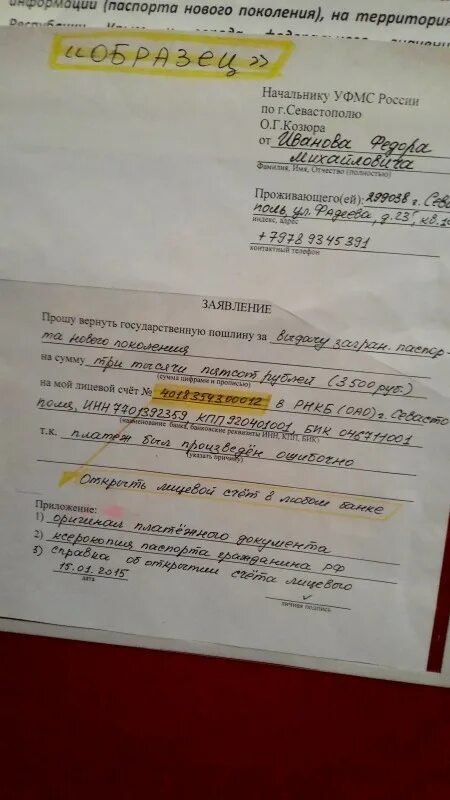 информации (паспорта нового поколения), на территории
«ОБРАЗЕЦ»
Начальнику УФМС России
по г.Севастополю
О.Г.Козюра
от Иванова Федора
Михайловича
Фамилия, Имя, Отчество (полностью)
Проживающего(ей): 299038 г. Сева
поль, ул. Фадеева, д.23, кв.
индекс, адрес
+7978 9345391
контактный телефон
ЗАЯВЛЕНИЕ
Прошу вернуть государственную пошлину за выдачу загран. паспор-
та нового поколения
на сумму три тысячи пятсот рублей (3500 руб.)
(сумма цифрами и прописью)
на мой лицевой счёт № 40183543.00012 в РНКБ (ОАО) г. Севасто
поля, ИНН 7701392359 КПП 920401001, БИК 046711001
(наименование банка, банковские реквизиты ИНН, КПП, БИК)
т.к. платеж был произведён ошибочно
(указать причину)
Открыть лицевой счёт в любом банке
Приложение:
1) оригинал платёжного документа
2) ксерокопия паспорта гражданина РФ
3) справка об открытии счёта лицевого
15.01.2015
дата
личная подпись